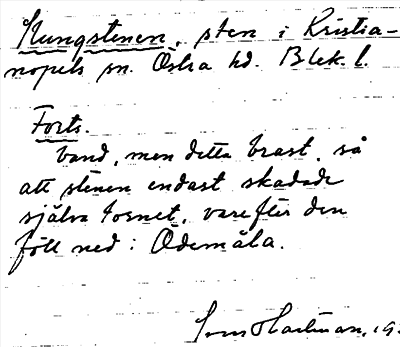 Kungstenen, sten i Kristia-
nopels sn. Östra hd. Blek. l.
Forts.
band, men detta brast, så
att stenen endast skadade
själva tornet, varefter den
föll ned i Ödemåla.
Hartman, 19